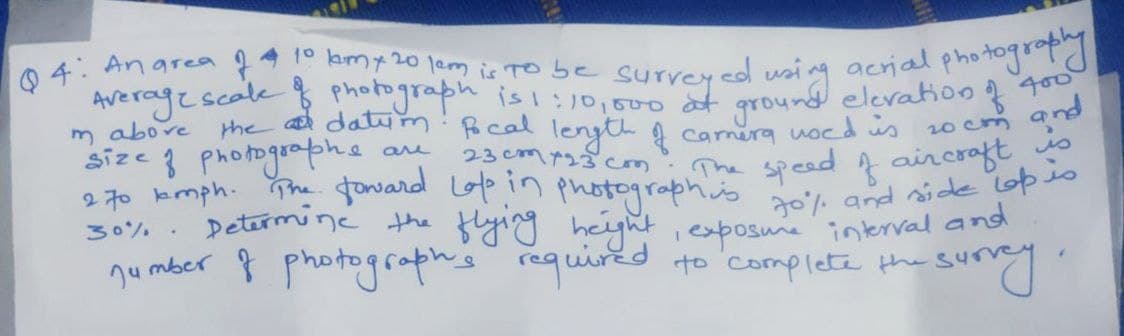 Q4: An area of 10 km x 20 km is to be surveyed using aerial photography
Average scale of photograph is 1:10,000 at ground elevation of 400
m above the datum. Focal length of camera used is 20 cm and
size of photographs are 23 cm x 23 cm. The speed of aircraft is
270 kmph. The forward lap in photograph is 70% and side lap is
30%. Determine the flying height, exposure interval and
number of photographs required to complete the survey.